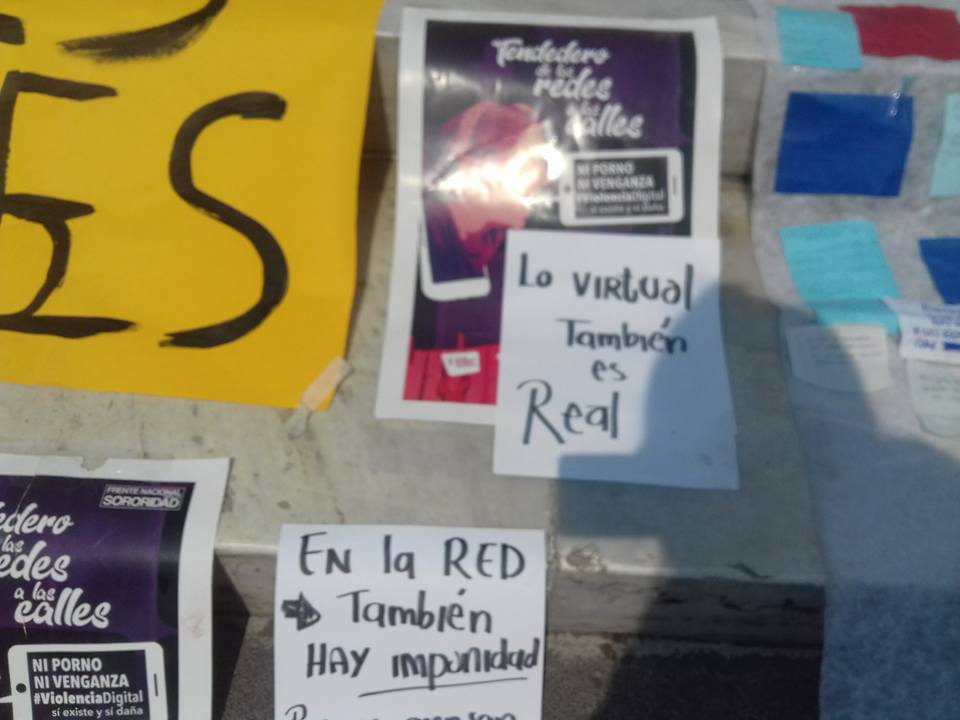 ES
Tendedero
de las
redes
a las
calles
NI PORNO
NI VENGANZA
#ViolenciaDigital
sí existe y sí daña
Lo VIRtual
También
es
Real
FRENTE NACIONAL
SORORIDAD
las
a las
calles
NI PORNO
NI VENGANZA
#ViolenciaDigital
sí existe y sí daña
EN la RED
También
HAY impunidad